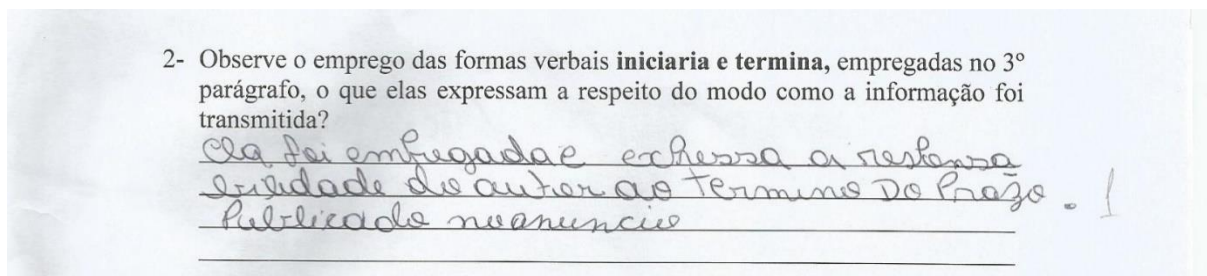 2- Observe o emprego das formas verbais iniciaria e termina, empregadas no 3º
parágrafo, o que elas expressam a respeito do modo como a informação foi
transmitida?
Ela foi empregadae exhessa a respansa
bilidade do autor ao termino Do Prazo. 1
Publicado noanuncio